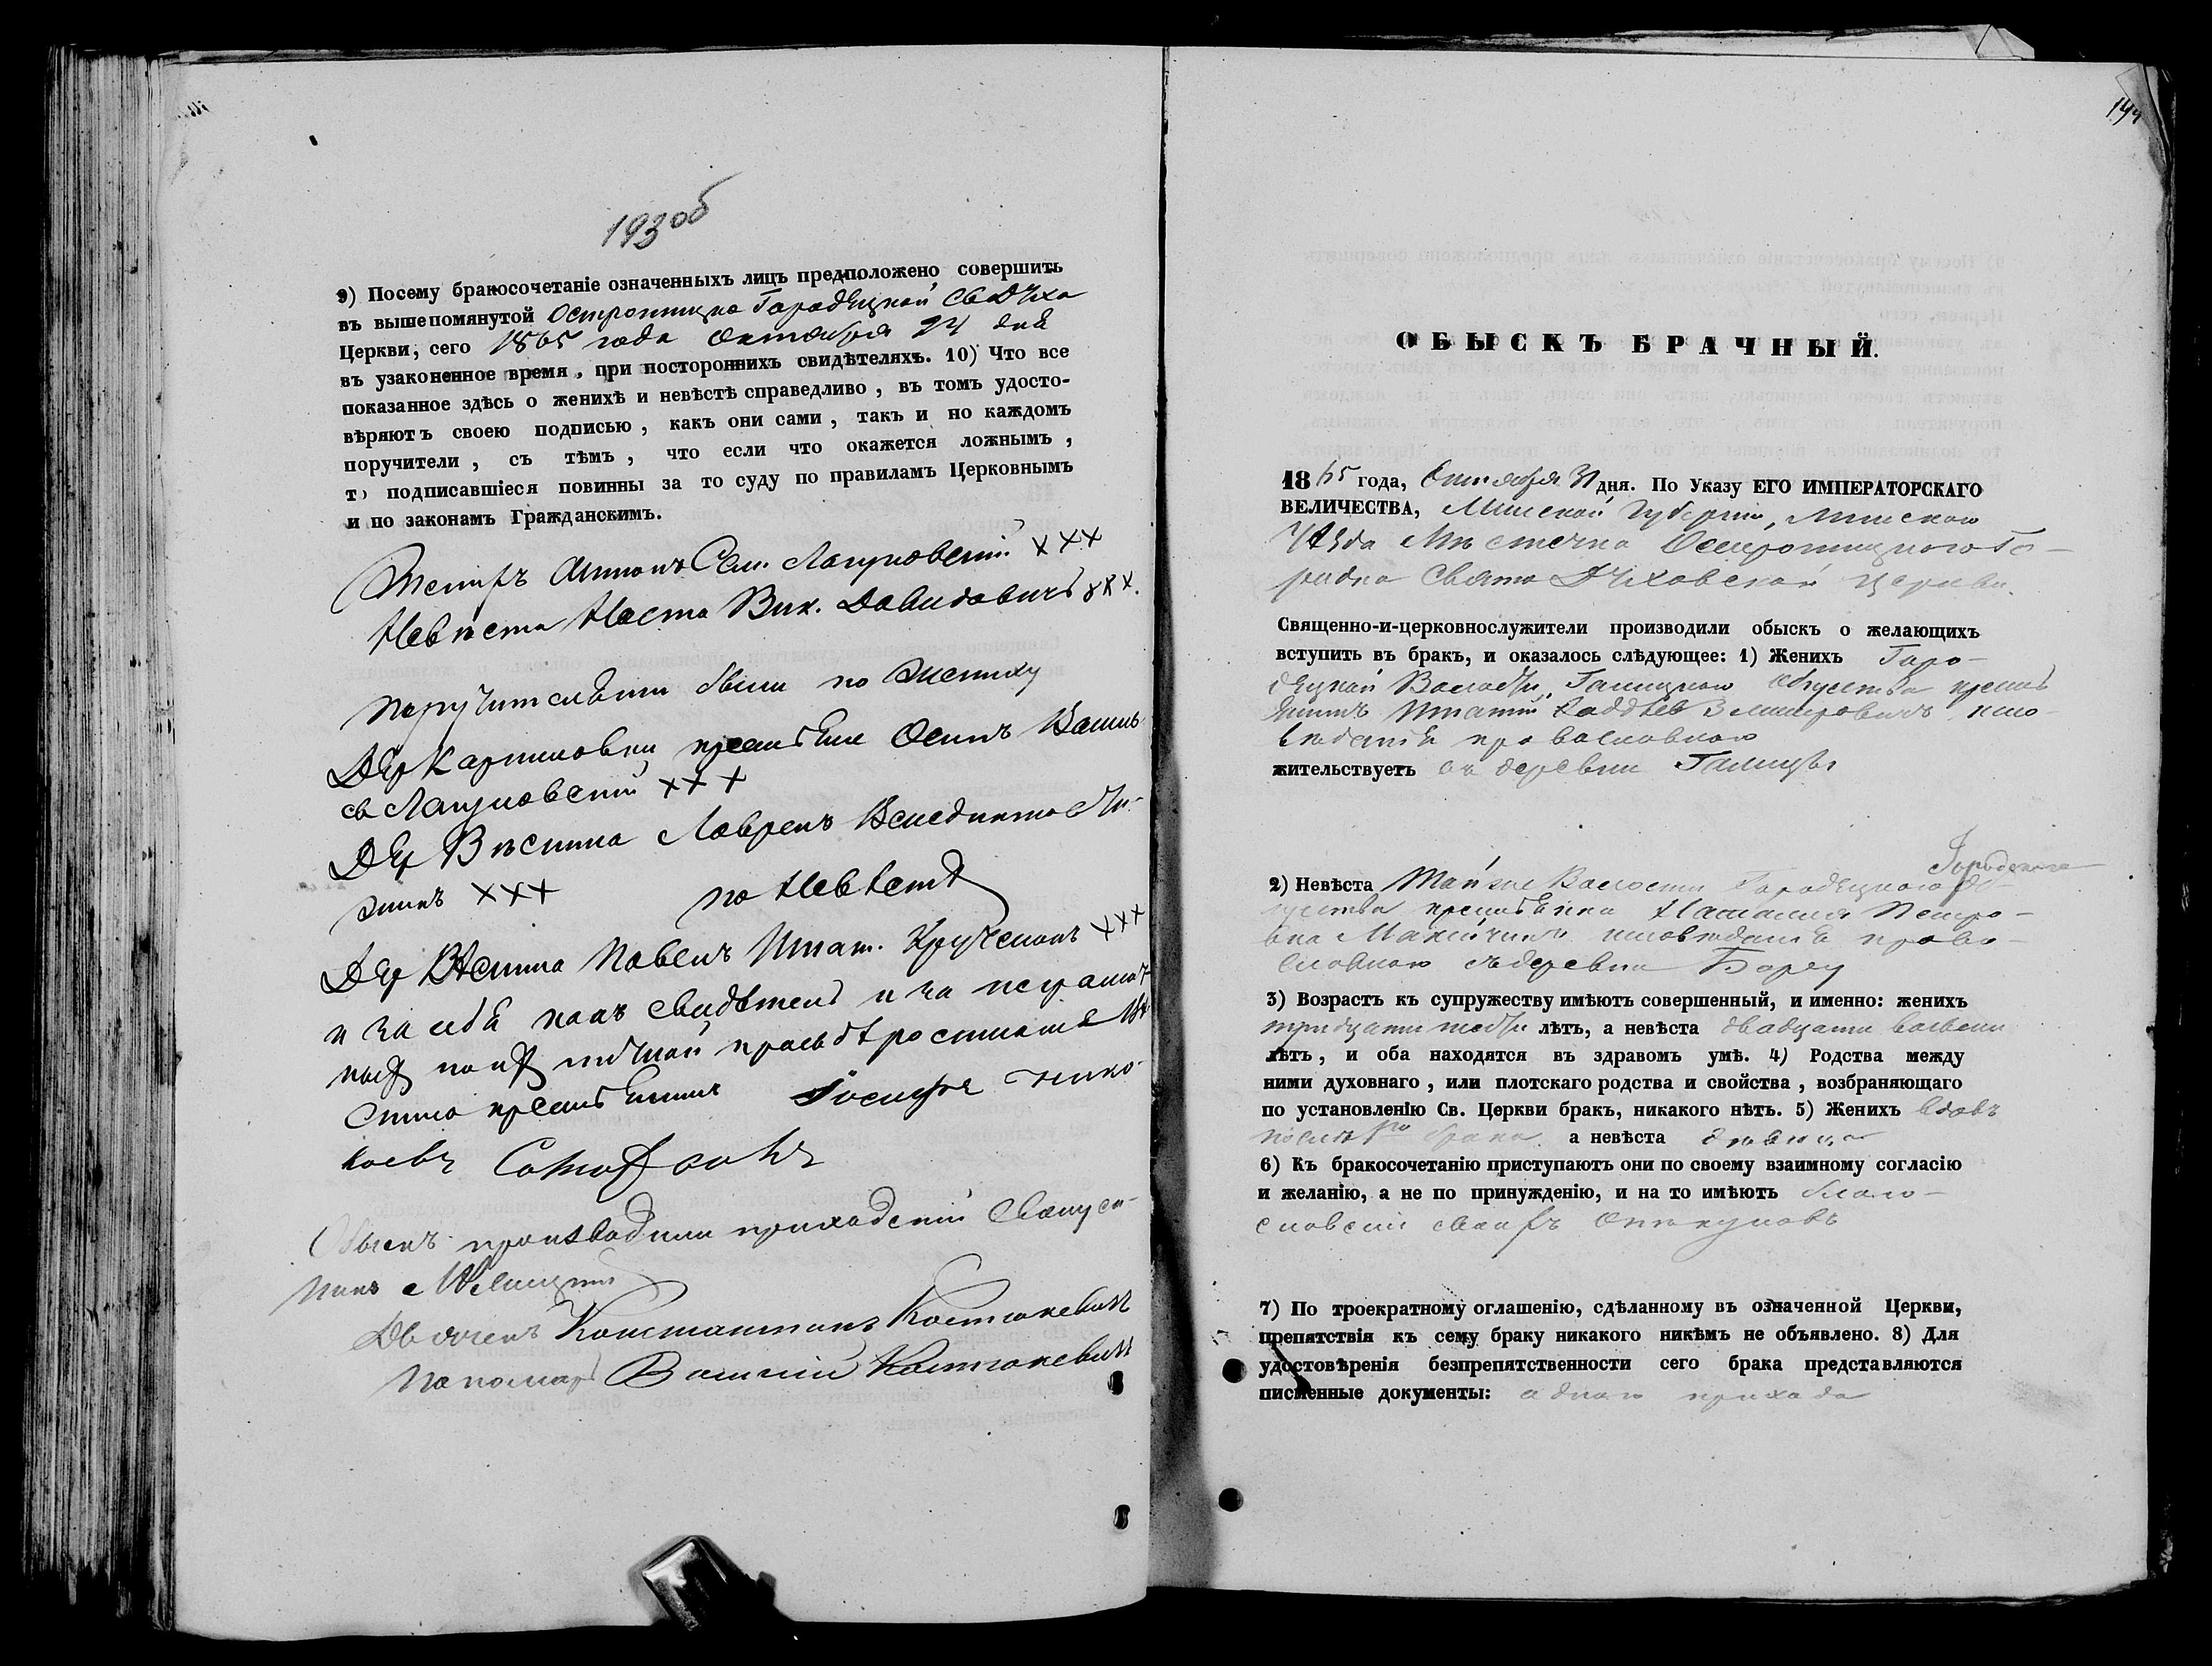 193об
9) Посему бракосочетаніе означенныхъ лицъ предположено совершить
въ вышепомянутой Острошицко Городецкой СвДуха
Церкви, сего 1865 года Октября 24 дня
въ узаконенное время, при постороннихъ свидѣтеляхъ. 10) Что все
показанное здѣсь о женихѣ и невѣстѣ справедливо, въ томъ удосто-
вѣряютъ своею подписью, какъ они сами, такъ и но каждомъ
поручители, съ тѣмъ, что если что окажется ложнымъ,
то подписавшіеся повинны за то суду по правиламъ Церковнымъ
и по законамъ Гражданскимъ.
Женихъ Антонъ Сем. Лапуновскій ххх
Невѣста Наста Вик. Давидовичъ ххх.
поручителями были по жениху
Дер Карниловки крестьяне Осипъ
Лапуновскій ххх
Дер Вѣснина Лавренъ Венедиктов
ххх по Невѣстѣ
Дер Вѣснина Павелъ Игнат. ххх
и за себя какъ свидѣтель и за
ихъ личной просьбѣ росписался
крестьянинъ Іосифъ Нико-
лаевъ
Обыскъ производили приходскій Священ-
никъ
Дьячекъ Константинъ Костюкевичъ
Пономарь Василій Костюкевичъ
194
ОБЫСКЪ БРАЧНЫЙ.
1865 года, Октября 31 дня. По Указу ЕГО ИМПЕРАТОРСКАГО
ВЕЛИЧЕСТВА, Минской Губерніи, Минскаго
Уѣзда Мѣстечка Острошицкаго Го-
родка Свято Духовской Церкви.
Священно-и-церковнослужители производили обыскъ о желающихъ
вступить въ бракъ, и оказалось слѣдующее: 1) Женихъ Горо-
децкой Волости, Галицкаго общества кресть
янинъ Игнатій испо-
вѣданія православнаго
жительствуетъ въ деревни Галицы
Городского
2) Невѣста Той же Волости Городецкаго об-
щества крестьянка Наталія Петро-
ва исповѣданія право-
славнаго съ деревни Борец
3) Возрастъ къ супружеству имѣютъ совершенный, и именно: женихъ
тридцати лѣтъ, а невѣста двадцати восьми
лѣтъ, и оба находятся въ здравомъ умѣ. 4) Родства между
ними духовнаго, или плотскаго родства и свойства, возбраняющаго
по установленію Св. Церкви бракъ, никакого нѣтъ. 5) Женихъ вдовъ
послѣ 1го брака а невѣста дѣвица
6) Къ бракосочетанію приступаютъ они по своему взаимному согласію
и желанію, а не по принужденію, и на то имѣютъ благо-
словеніе своихъ опекуновъ
7) По троекратному оглашенію, сдѣланному въ означенной Церкви,
препятствія къ сему браку никакого никѣмъ не объявлено. 8) Для
удостовѣренія безпрепятственности сего брака представляются
писменные документы: одного прихода